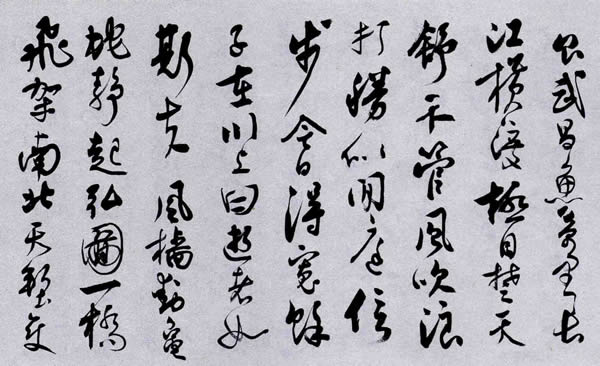 食武昌魚萬里長
江橫渡極目楚天
舒不管風吹浪
打勝似閒庭信
步今日得寬餘
子在川上曰逝者如
斯夫風檣動龜
蛇靜起弘圖一橋
飛架南北天塹變